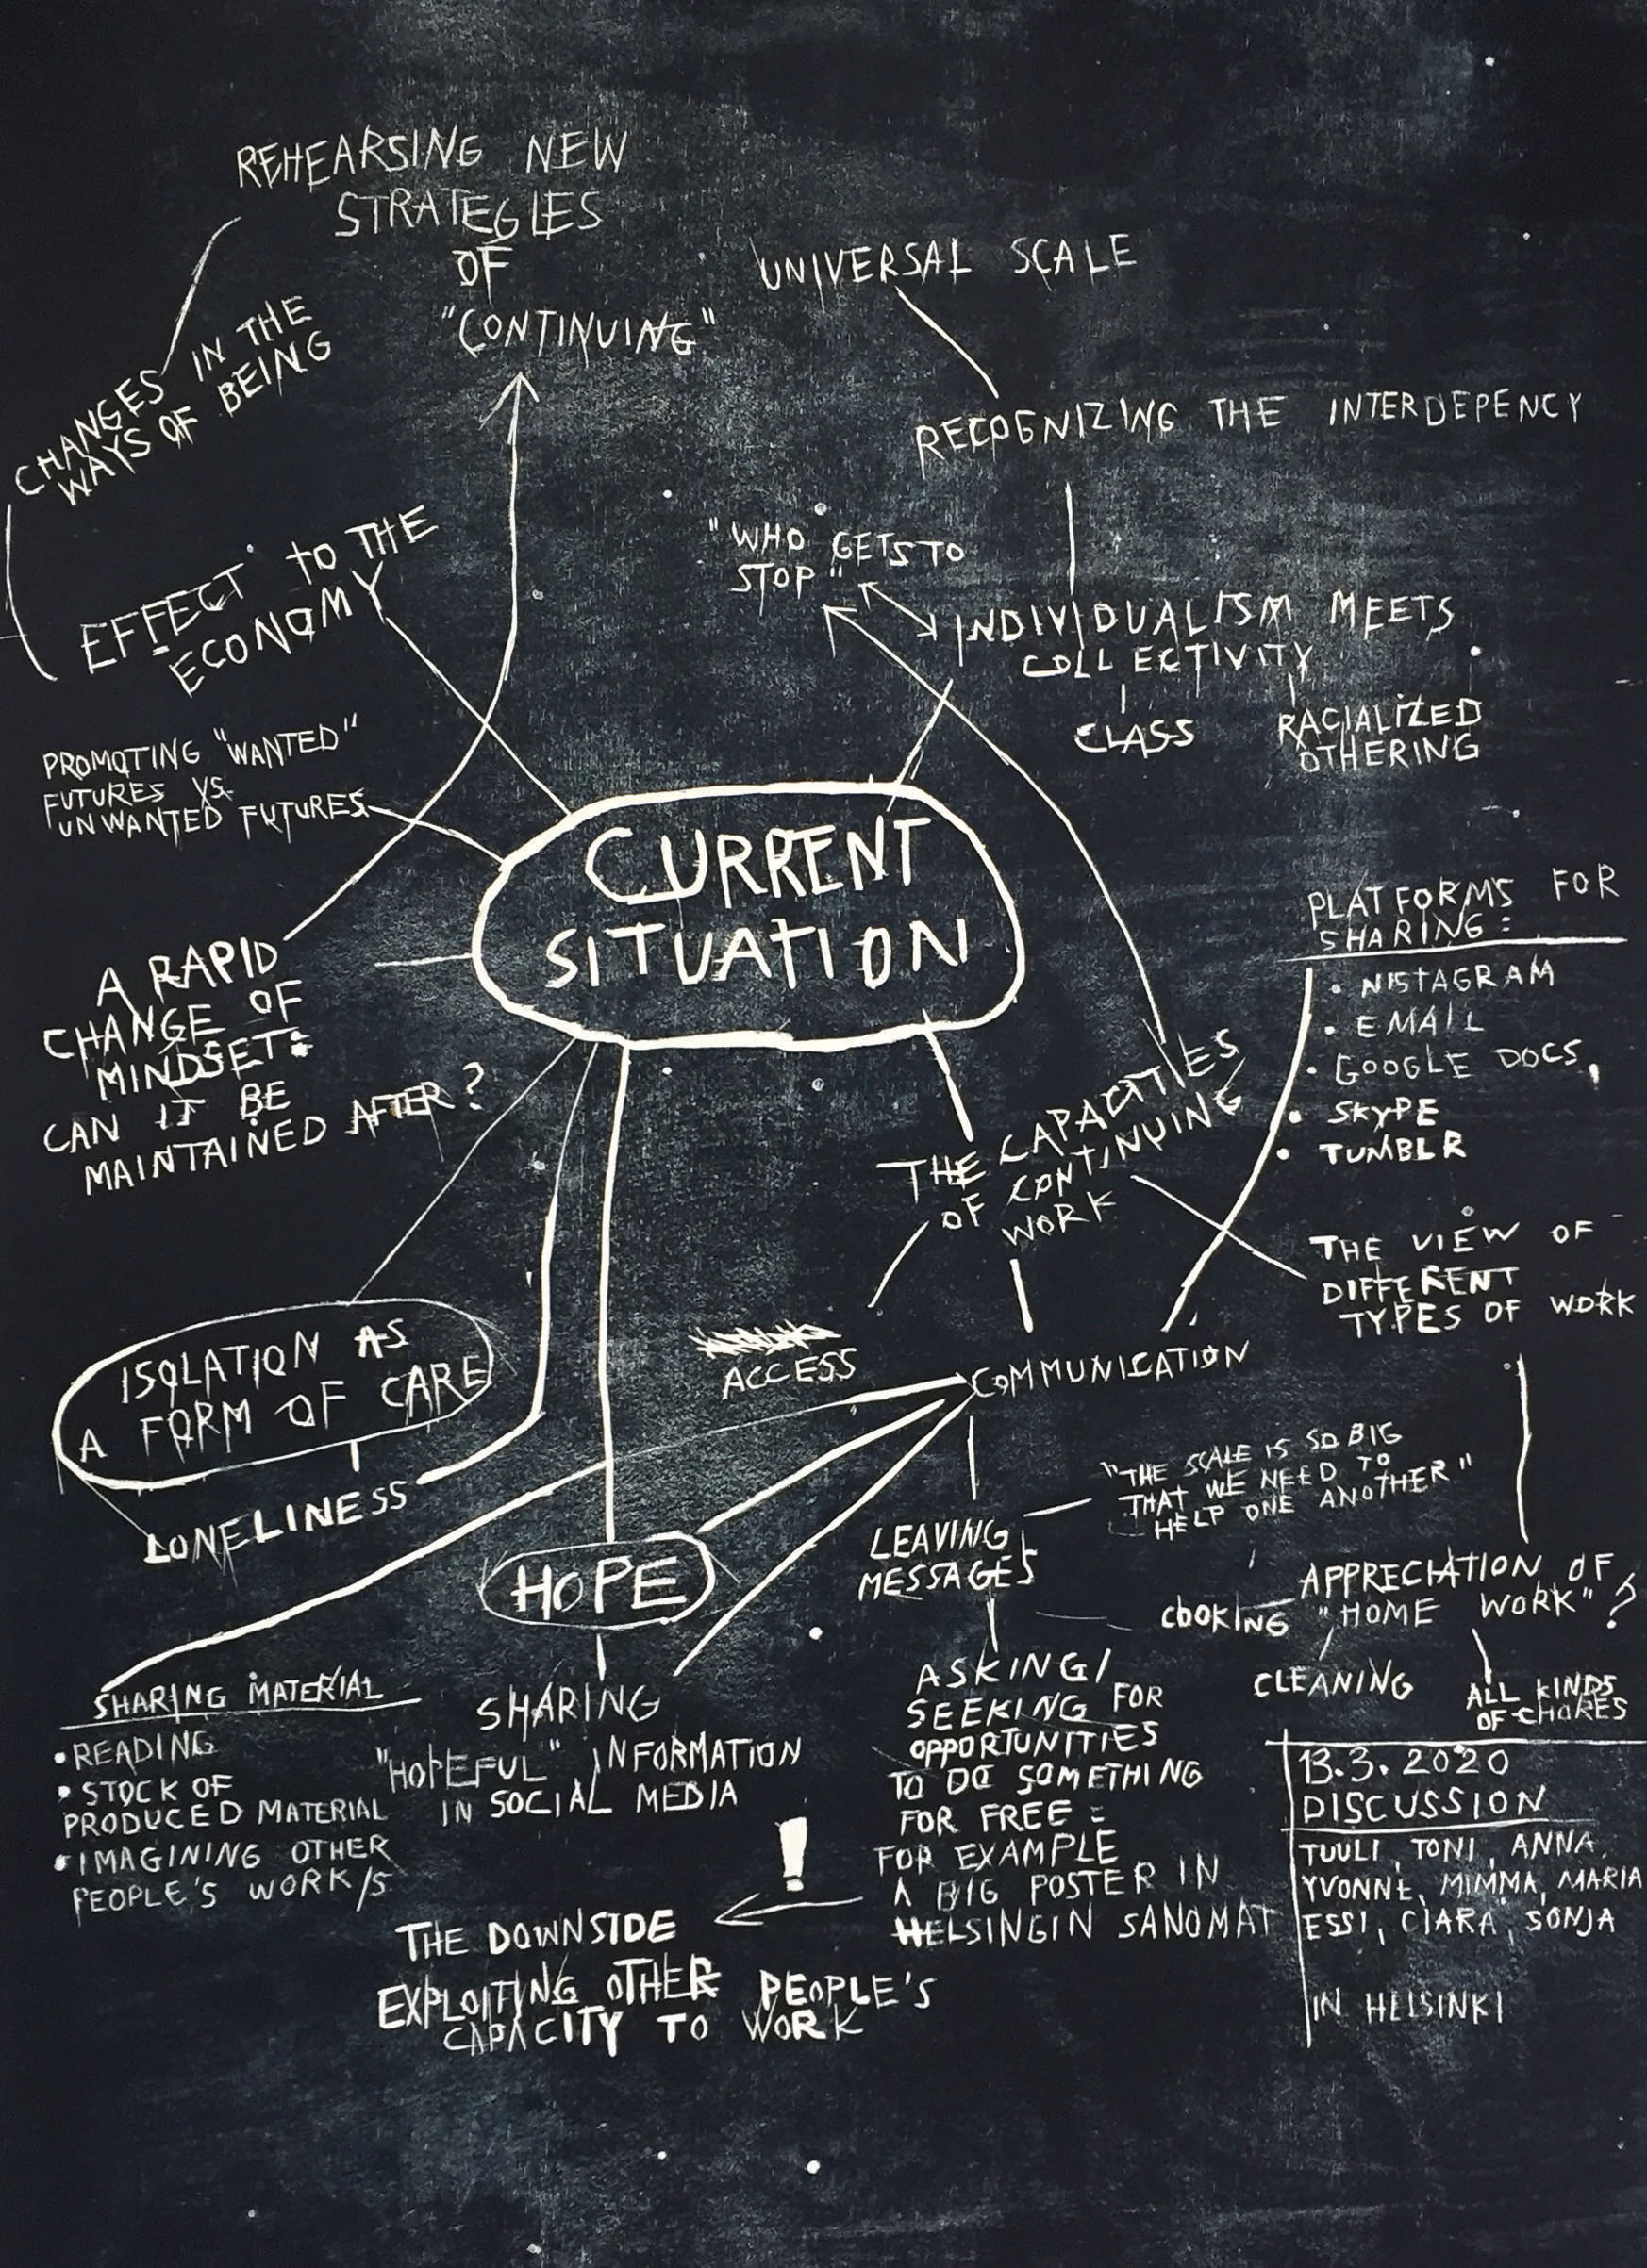 REHEARSING NEW
STRATEGIES
OF
"CONTINUING"
UNIVERSAL SCALE
CHANGES IN THE
WAYS OF BEING
RECOGNIZING THE INTERDEPENCY
EFFECT TO THE
ECONOMY
"WHO GETS TO
STOP"
INDIVIDUALISM MEETS
COLLECTIVITY
CLASS
RACIALIZED
OTHERING
PROMOTING "WANTED"
FUTURES VS.
UNWANTED FUTURES
CURRENT
SITUATION
A RAPID
CHANGE OF
MINDSET:
CAN IT BE
MAINTAINED AFTER?
PLATFORMS FOR
SHARING:
• NISTAGRAM
• EMAIL
• GOOGLE DOCS,
• SKYPE
• TUMBLR
THE CAPACITIES
OF CONTINUING
WORK
THE VIEW OF
DIFFERENT
TYPES OF WORK
ISOLATION AS
A FORM OF CARE
LONELINESS
ACCESS
COMMUNICATION
"THE SCALE IS SO BIG
THAT WE NEED TO
HELP ONE ANOTHER"
LEAVING
MESSAGES
HOPE
APPRECIATION OF
"HOME WORK"?
COOKING
CLEANING
ALL KINDS
OF CHORES
SHARING MATERIAL
• READING
• STOCK OF
PRODUCED MATERIAL
• IMAGINING OTHER
PEOPLE'S WORK/S
SHARING
"HOPEFUL" INFORMATION
IN SOCIAL MEDIA
ASKING/
SEEKING FOR
OPPORTUNITIES
TO DO SOMETHING
FOR FREE:
FOR EXAMPLE
A BIG POSTER IN
HELSINGIN SANOMAT
!
THE DOWNSIDE
EXPLOITING OTHER PEOPLE'S
CAPACITY TO WORK
13.3.2020
DISCUSSION
TUULI, TONI, ANNA,
YVONNE, MIMMA, MARIA
ESSI, CIARA, SONJA
IN HELSINKI